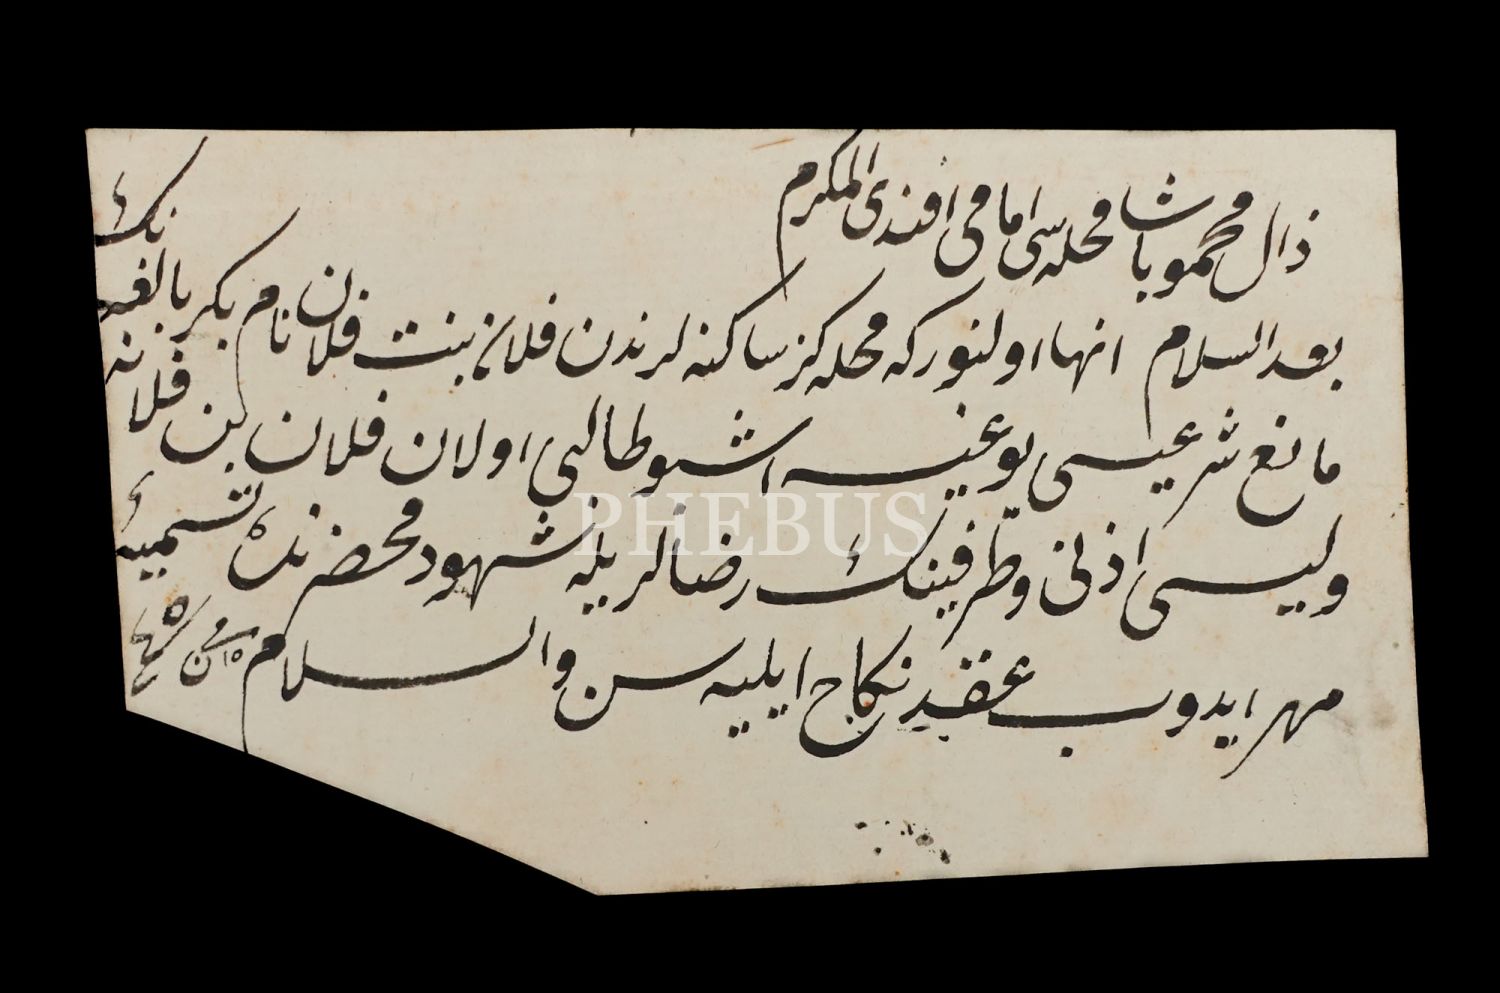 ذال محمود پاشا محله سی امامی افندی المکرم
بعد السلام انها اولنورکه محله کز ساکنه لرندن فلانه بنت فلان نام بکر بالغه نک
مانع شرعیسی یوغیسه اشبو طالبی اولان فلان بن فلانه
ولیسی اذنی و طرفینک رضالریله شهود محضرنده تسمیۀ
مهر ایدوب عقد نکاح ایلیه سن والسلام
PHEBUS